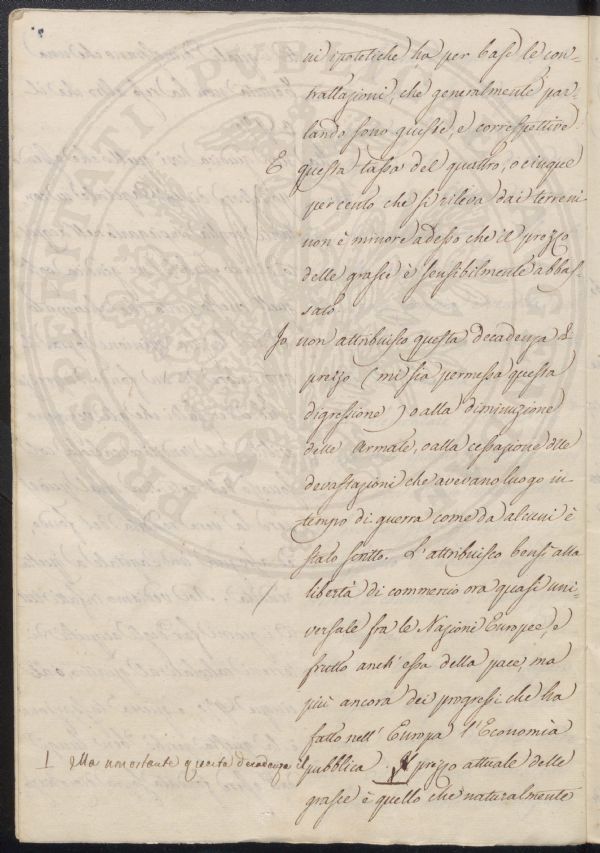 ni ipotetiche ha per base le con-
trattazioni, che generalmente par-
lando sono giuste, e correspettive.
E questa tassa del quattro, o cinque
per cento che si rileva dai terreni
non è minore adesso che il prezzo
delle grasce è sensibilmente abbas-
sato.
Io non attribuisco questa decadenza di
prezzo (mi sia permessa questa
digressione) o alla diminuzione
delle Armate, o alla cessazione delle
devastazioni che avevano luogo in
tempo di guerra come da alcuni è
stato scritto. L'attribuisco bensì alla
libertà di commercio ora quasi uni-
versale fra le Nazioni Europee, e
frutto anch' essa della pace, ma
più ancora dei progressi che ha
fatto nell' Europa l'Economia
pubblica. Il prezzo attuale delle
grasce è quello che naturalmente
Ma nonostante questa decadenza il